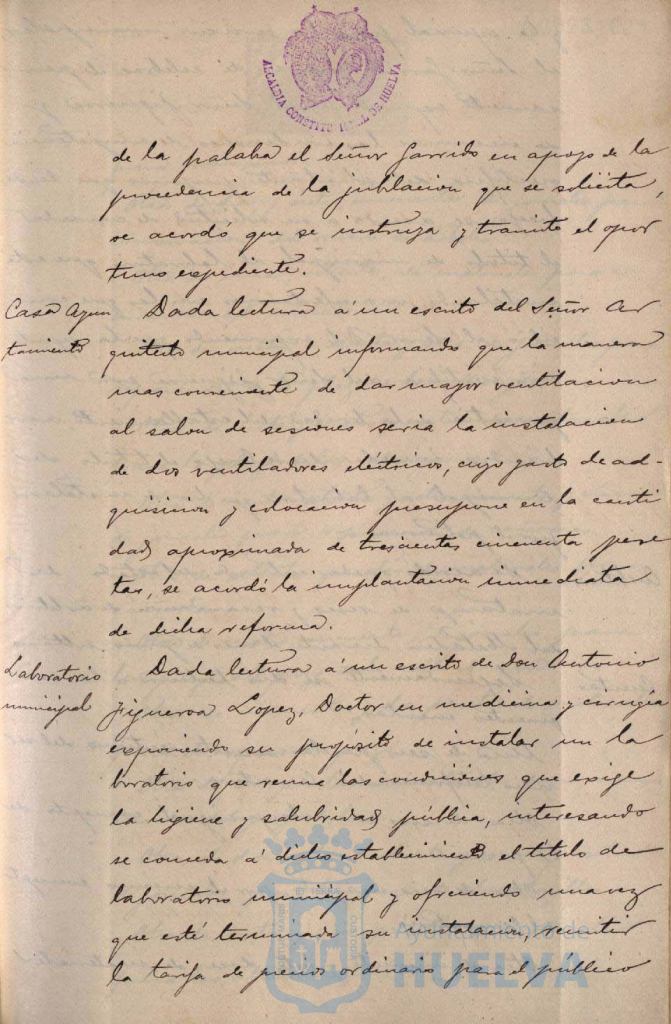 ALCALDIA CONSTITUCIONAL DE HUELVA
de la palaba el Señor Garrido en apoyo de la
procedencia de la jubilacion que se solicita,
se acordó que se instruya y tramite el opor
tuno expediente.
Casa Ayun
tamiento
Dada lectura á un escrito del Señor Ar
quitecto municipal informando que la manera
mas conveniente de dar mayor ventilacion
al salon de sesiones seria la instalacion
de dos ventiladores eléctricos, cuyo gasto de ad-
quisicion y colocacion presupone en la canti
dad aproximada de trescientas cincuenta pese
tas, se acordó la implantacion inmediata
de dicha reforma.
Laboratorio
municipal
Dada lectura á un escrito de Don Antonio
Figueroa Lopez, Doctor en medicina y cirugía
exponiendo su propósito de instalar un la
boratorio que reuna las condiciones que exige
la higiene y salubridad pública, interesando
se conceda á dicho establecimiento el título de
laboratorio municipal y ofreciendo una vez
que esté terminada su instalacion, remitir
la tarifa de precios ordinario para el público
Ayuntamiento de
HUELVA